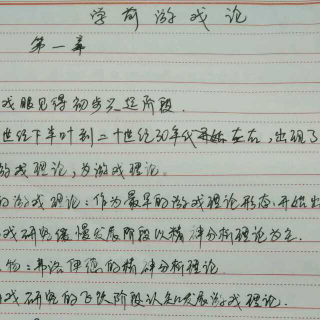 学前游戏论
第一章
戏眼见得初步兴起阶段.
世纪下半叶到二十世纪30年代左右,出现了
游戏理论,为游戏理论。
的游戏理论:作为最早的游戏理论形态,开始出
戏研究缓慢发展阶段以精神分析理论为主.
物:弗洛伊德的精神分析理论
戏研究的飞跃阶段认知发展游戏理论.